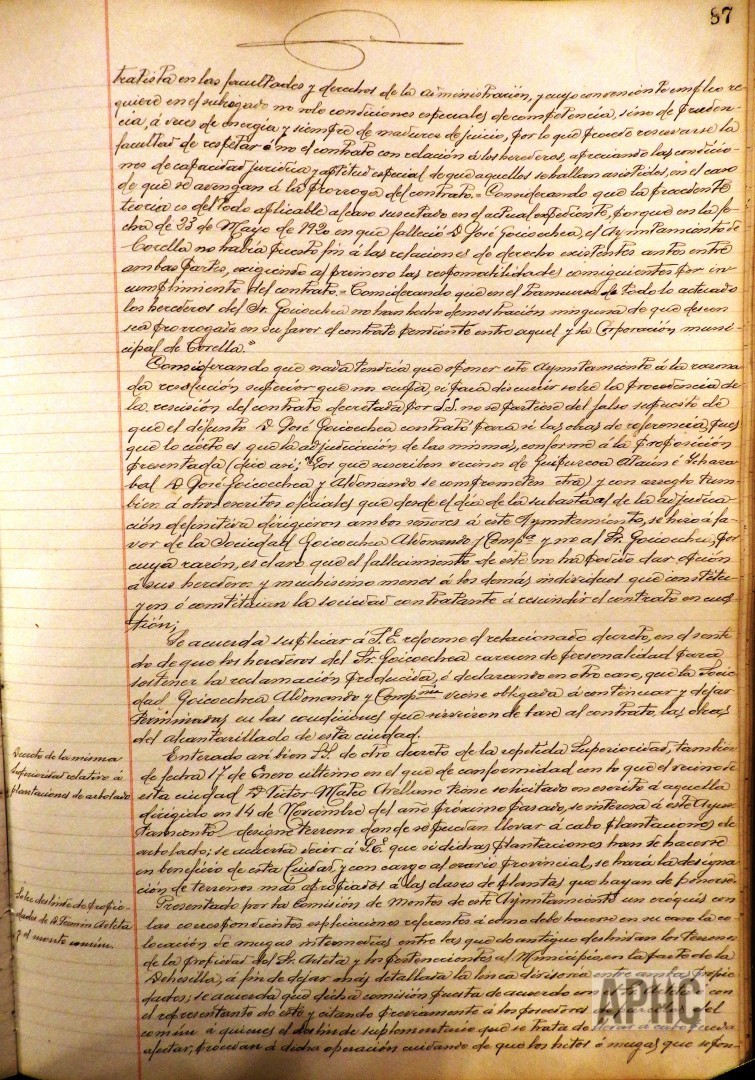 87
tratista en las facultades y derechos de la administración, y cuyo conveniente empleo re-
quiere en el subrogado no solo condiciones especiales de competencia, sino de pruden-
cia, á veces de energía y siempre de madurez de juicio, por lo que procede reservarse la
facultad de respetar ó no el contrato con relación á los herederos, apreciando las condicio-
nes de capacidad jurídica y aptitud especial de que aquellos se hallan asistidos, en el caso
de que se avengan á la prorroga del contrato.= Considerando que la precedente
teoria es del todo aplicable al caso suscitado en el actual expediente, porque en la fe-
cha de 23 de Mayo de 1920 en que falleció D José Goicoechea, el Ayuntamiento de
Corella no había puesto fin á las relaciones de derecho existentes antes entre
ambas partes, exigiendo al primero las responsabilidades consiguientes por in-
cumplimiento del contrato.= Considerando que en el transcurso de todo lo actuado
los herederos del Sr. Goicoechea no han hecho demostración ninguna de que deseen
sea prorrogado en su favor el contrato pendiente entre aquel y la Corporación muni-
cipal de Corella."
Considerando que nada tendría que oponer este Ayuntamiento á la razona-
da resolución superior que nos ocupa, si para discurrir sobre la procedencia de
la rescisión del contrato decretada por S.S. no se partiese del falso supuesto de
que el difunto D José Goicoechea contrató para si las obras de referencia, pues
que lo cierto es que la adjudicación de las mismas, conforme á la proposición
presentada (dice asi; "Los que suscriben vecinos de Guipuzcoa Ataun é Ichaza-
bal D José Goicoechea y Aldonando se comprometen etra) y con arreglo tam-
bien á otros escritos oficiales que desde el día de la subasta al de la adjudica-
ción definitiva dirigieron ambos señores á este Ayuntamiento, se hizo á fa-
vor de la Sociedad Goicoechea Aldonando y Compª y no al Sr. Goicoechea, por
cuya razón, es claro que el fallecimiento de este no ha podido dar opción
á sus herederos y muchisimo menos á los demás individuos que constitu-
yen ó constituian la sociedad contratante á rescindir el contrato en cues-
tión;
Se acuerda suplicar á S.E. reforme el relacionado decreto, en el senti-
do de que los herederos del Sr. Goicoechea carecen de personalidad para
sostener la reclamación producida, ó declarando en otro caso, que la Socie-
dad Goicoechea Aldonando y Compañia viene obligada á continuar y dejar
terminadas en las condiciones que sirvieron de base al contrato, las obras
del alcantarillado de esta ciudad.
Decreto de la misma
Superioridad relativo á
plantaciones de arbolado
Enterado asi bien S.S. de otro decreto de la repetida Superioridad, tambien
de fecha 17 de Enero ultimo en el que de conformidad con lo que el vecino de
esta ciudad D Victor Mateo Arellano tiene solicitado en escrito á aquella
dirigido en 14 de Noviembre del año próximo pasado, se interesa á este Ayun-
tamiento designe terreno donde se puedan llevar á cabo plantaciones de
arbolado; se acuerda decir á S.E. que si dichas plantaciones han de hacerse
en beneficio de esta Ciudad y con cargo al erario provincial, se hará la designa-
ción de terrenos más apropiados á las clases de plantas que hayan de ponerse.
Sobre deslinde de propie-
dades de D Fermin Arteta
y el monte comun.
Presentado por la Comisión de Montes de este Ayuntamiento un croquis con
las correspondientes esplicaciones referentes á como debe hacerse en su caso la co-
locación de mugas intermedias entre las que de antiguo deslindan los terrenos
de la propiedad del Sr. Arteta y los pertenecientes al Municipio, en la parte de la
Dehesilla, á fin de dejar más detallada la linea divisoria entre ambas propie-
dades; se acuerda que dicha comisión puesta de acuerdo con
el representante de este y citando previamente á los poseedores del
comun á quienes el deslinde suplementario que se trata de llevar á cabo pueda
afectar, procedan á dicha operación cuidando de que los hitos ó mugas que se pon-
APHC